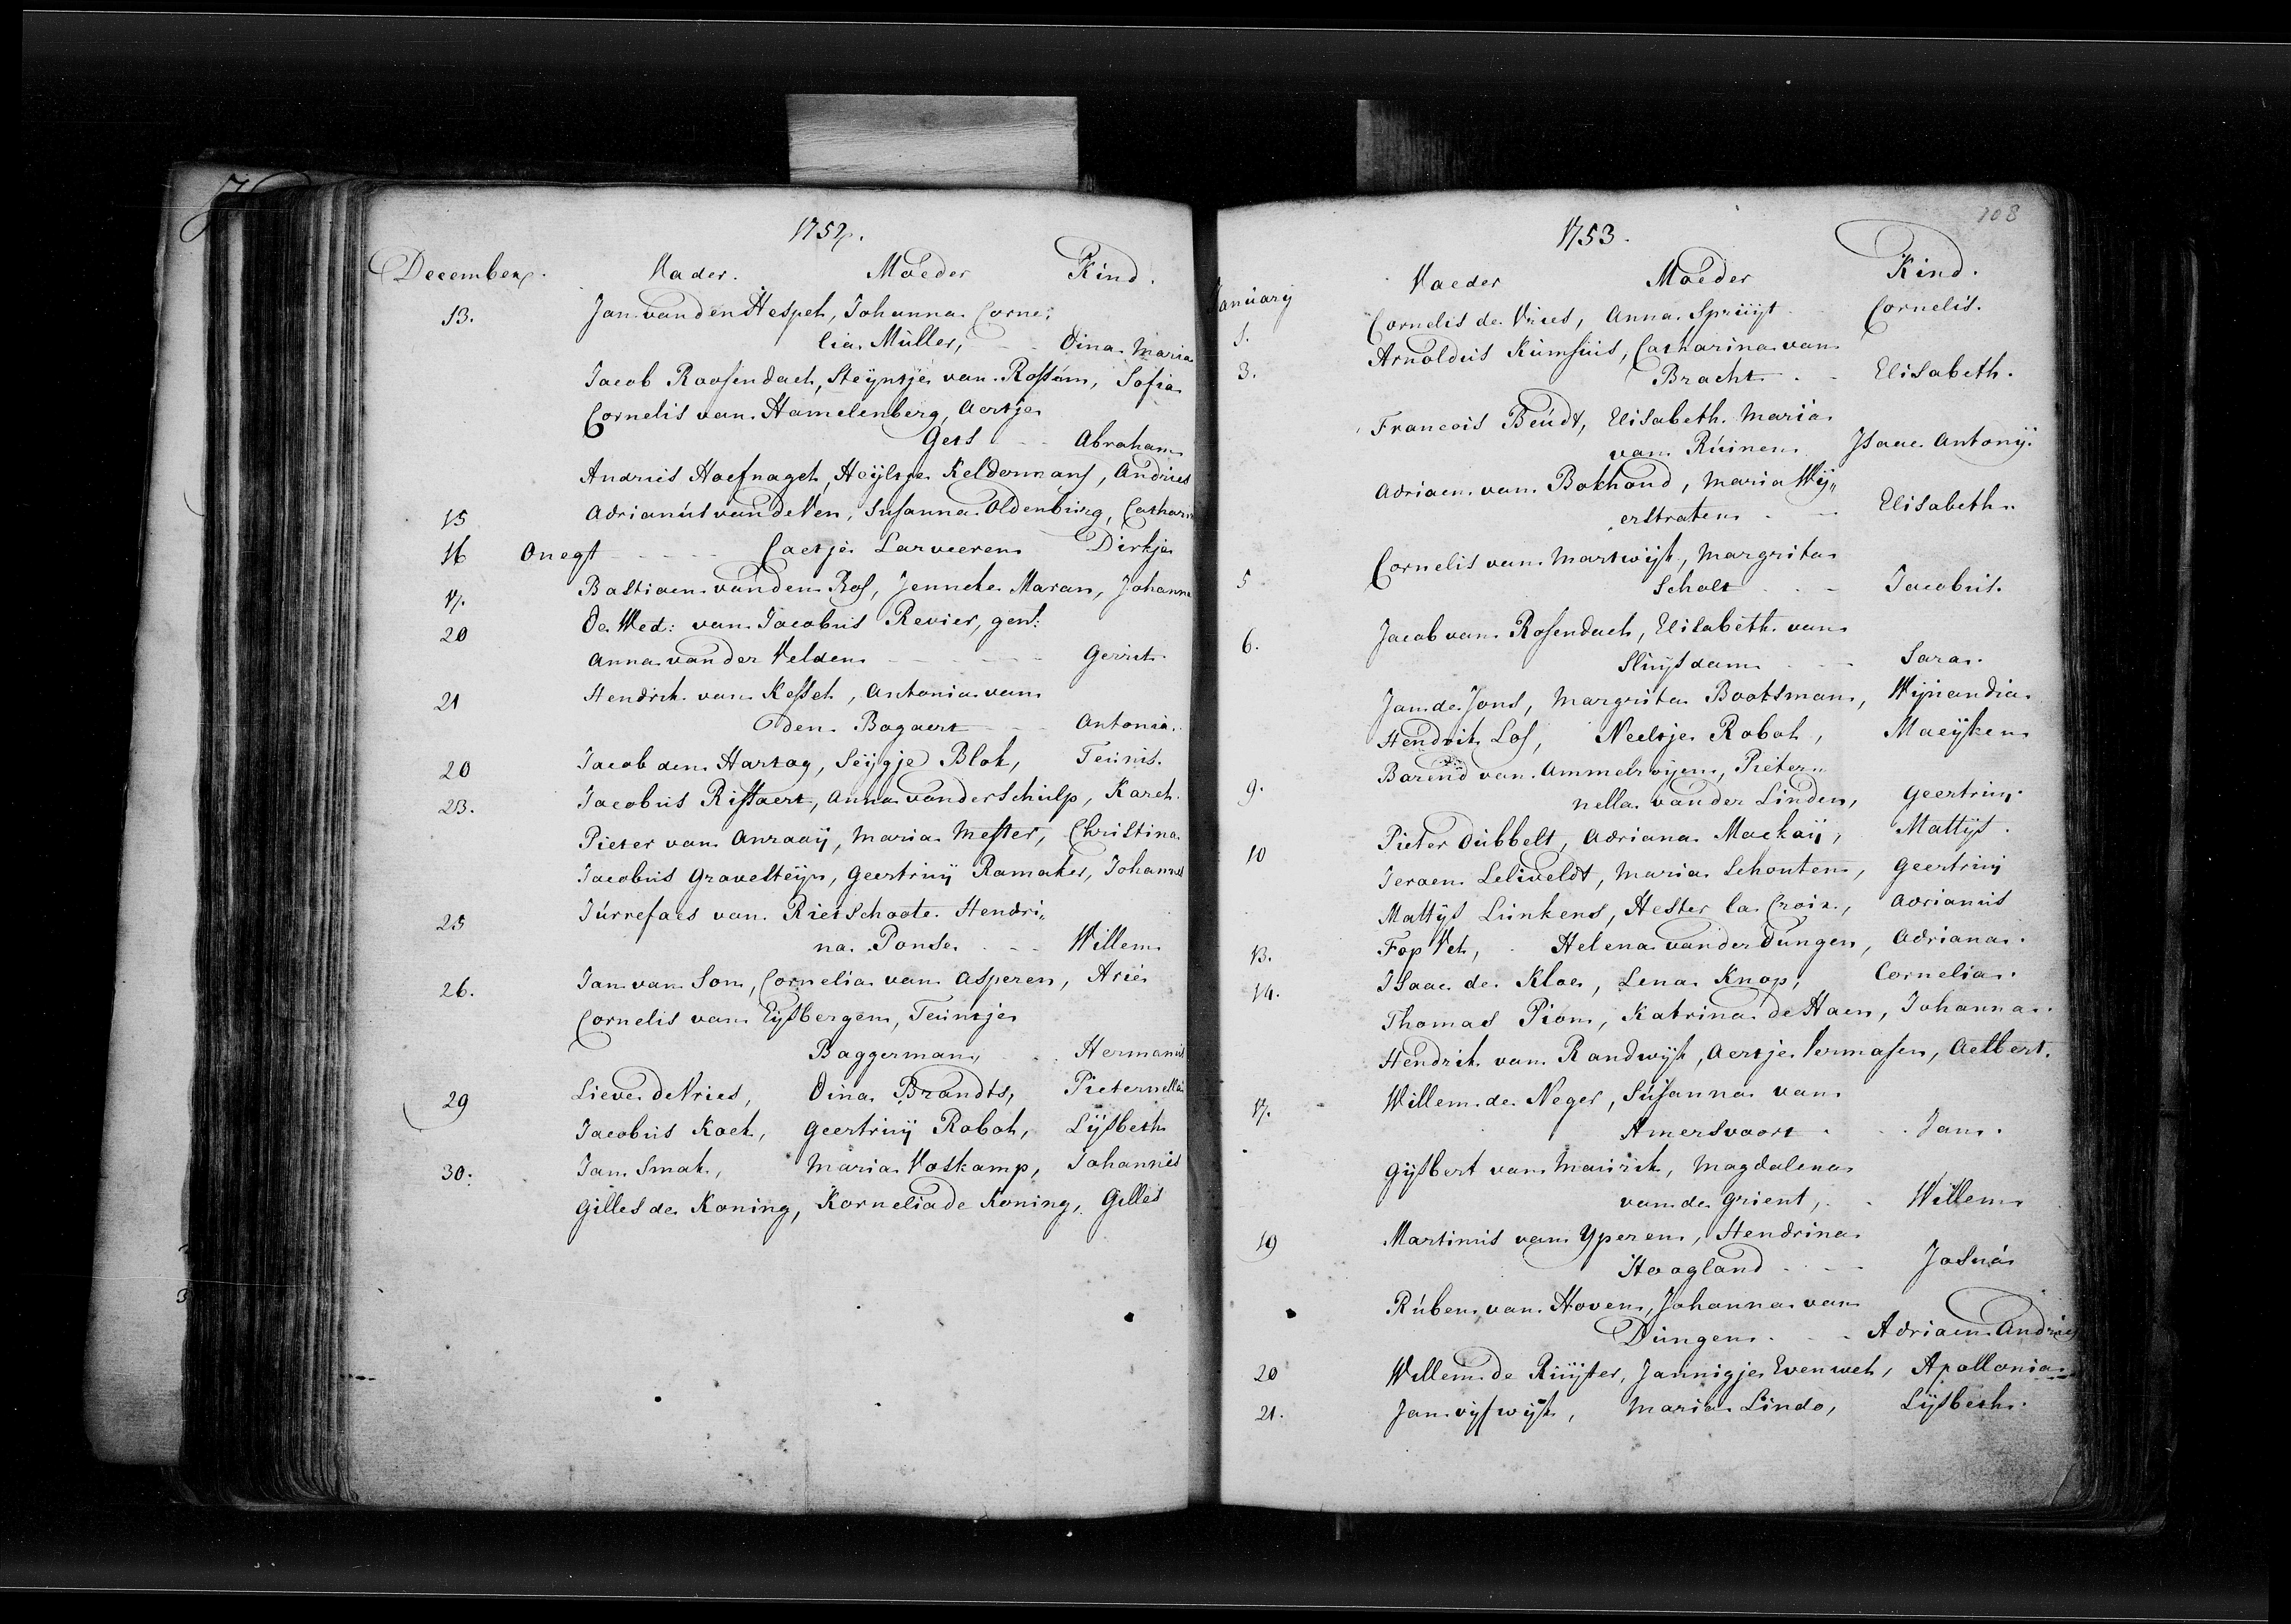 1752.
December. Vader. Moeder Kind.
13. Jan van den Hespel, Johanna Corne-
lia Müller, Dina Maria
Jacob Roosendael, Steyntje van Rossum, Sofia
Cornelis van Hamelenberg, Aertje
Gers Abraham
Andries Hoefnagel, Heyltje Keldermans, Andries
15 Adrianus van de Ven, Susanna Oldenburg,
16 Onegt Caetje Larveeren Dirkje
17. Bastiaen van den Bos, Jenneke Maran, Johanna
20 De Wed: van Jacobus Revier, gent:
Anna van der Velden Gerrit
21 Hendrik van Kessel, Antonia van
den Bogaert Antonia.
20 Jacob den Hartog, Seijgje Blok, Teunis.
23. Jacobus Rissaert, Anna van der Schulp, Karel.
Pieter van Anraaij, Maria Mester, Christina
Jacobus Gravesteijn, Geertruij Ramaker, Johannes
25 Jurrefaes van Rietschoote Hendri„
na Ponse Willem
26. Jan van Son, Cornelia van Asperen, Arie
Cornelis van Eijsbergen, Teuntje
Baggerman, Hermanus
29 Lieve de Vries, Dina Brandts, Pieternella
Jacobus Koek, Geertruij Robol, Lijsbeth
30. Jan Smak, Maria Voskamp, Johannes
Gilles de Koning, Kornelia de Koning, Gilles
108
1753.
January Vaeder Moeder Kind.
1. Cornelis de Vries, Anna Spruijt Cornelis.
3. Arnoldus Kumsius, Catharina van
Bracht Elisabeth.
Francois Beudt, Elisabeth Maria
van Ruinen Isaac Antony.
Adriaen van Bokhond, Maria Wij„
erstraten Elisabeth.
5 Cornelis van Martwijk, Margrita
Scholt Jacobus.
6. Jacob van Rosendael, Elisabeth van
Sluijsdam Sara.
Jan de Jong, Margrita Bootsman, Wijnandia
Hendrik Los, Neeltje Robol, Maeijken
9. Barend van Ammelroijen, Pieter„
nella van der Linden, Geertruij.
10 Pieter Dubbelt, Adriana Mackaij, Mattijs.
Jeroen Leliveldt, Maria Schouten, Geertruij
Mattijs Lunkens, Hester la Croix, Adrianus
13. Fop Vek, Helena van der Dungen, Adriana.
14. Isaac de Kloe, Lena Knop, Cornelia.
Thomas Pion, Katrina de Haen, Johanna.
Hendrik van Randwijk, Aertje Vermasen, Aelbert.
17. Willem de Neger, Susanna van
Amersvoort Jan.
Gijsbert van Maurik, Magdalena
van de Grient, Willem
19 Martinus van Yperen, Hendrina
Hoogland Josua
Ruben van Hoven, Johanna van
Dungen Adriaen Andries
20 Willem de Ruijter, Jannigje Evenwel, Apollonia
21. Jan vijfwijk, Maria Lindo, Lijsbeth.